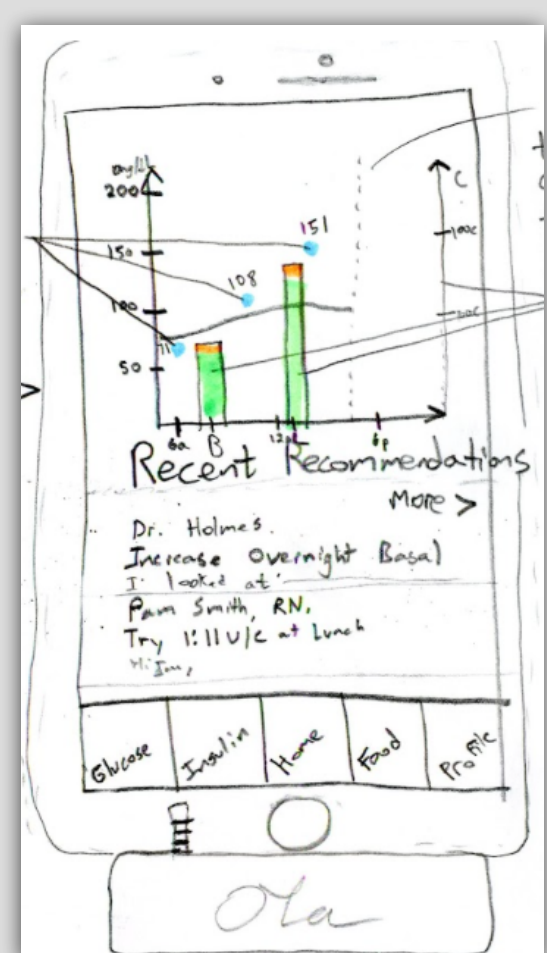 mg/dl
200
C
151
150
100c
108
100
71
50
6a B 12p L 6p
Recent Recommendations
More >
Dr. Holmes.
Increase Overnight Basal
I looked at
Pam Smith, RN.
Try 1:11 U/C at Lunch
Glucose
Insulin
Home
Food
Profile